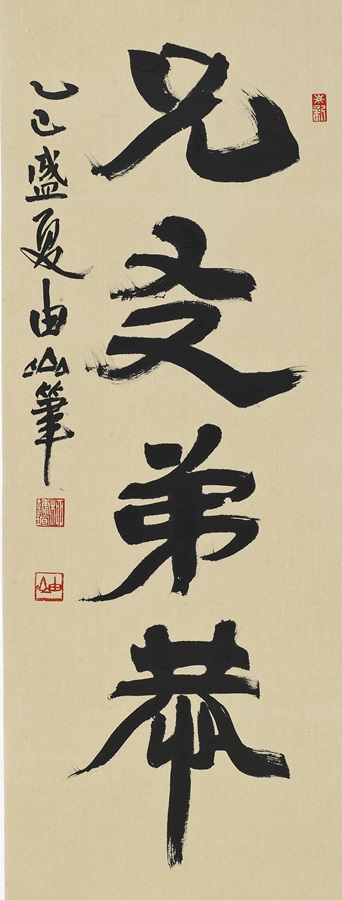 兄友弟恭
乙巳盛夏由山筆